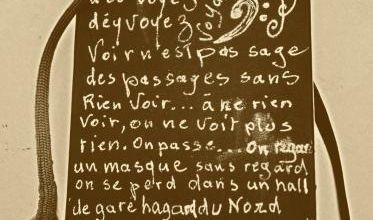 dévoyez
Voir n'est pas sage
des passages sans
Rien Voir... à ne rien
Voir, on ne voit plus
rien. On passe... On regar
un masque sans regard
on se perd dans un hall
de gare hagard du Nord